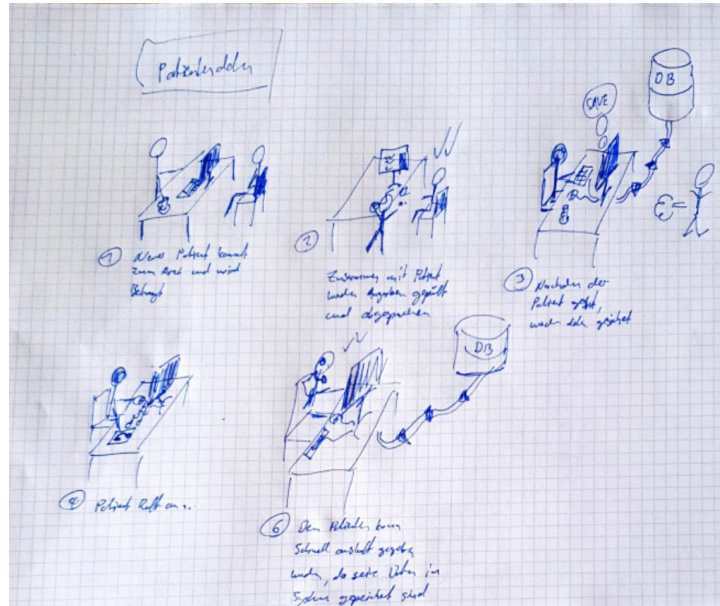 Patientendaten
DB
SAVE
1 Neuer Patient kommt
zum Arzt und wird
befragt
2
Zusammen mit Patient
werden Angaben geprüft
und abgesprochen
3 Nachdem der
Patient geht,
werden daten gespeichert
DB
4 Patient Ruft an..
6 Dem Patienten kann
Schnell auskunft gegeben
werden, da seine Daten im
System gespeichert sind